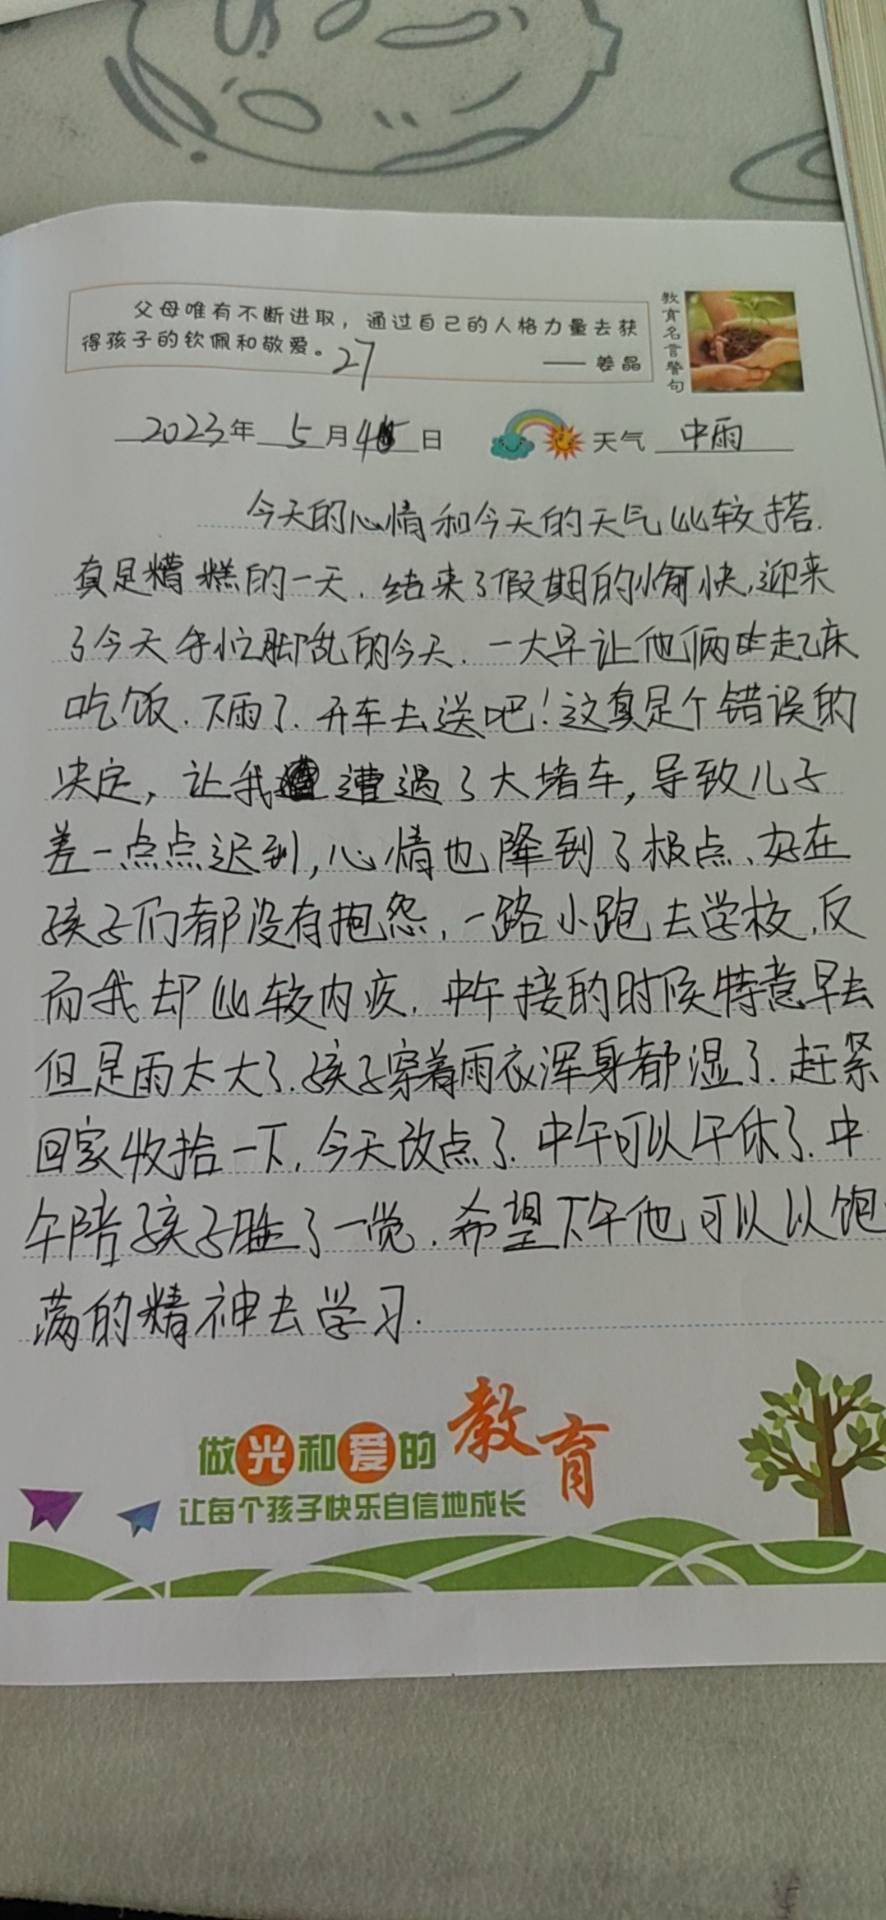 父母唯有不断进取，通过自己的人格力量去获
得孩子的钦佩和敬爱。
—— 姜晶
教育名言警句
27
2023年 5月4日 天气 中雨
今天的心情和今天的天气比较搭.
真是糟糕的一天.结束了假期的愉快,迎来
了今天手忙脚乱的今天.一大早让他俩起床
吃饭.下雨了.开车去送吧!这真是个错误的
决定,让我遭遇了大堵车,导致儿子
差一点点迟到,心情也降到了极点、好在
孩子们都没有抱怨,一路小跑去学校,反
而我却比较内疚.中午接的时候特意早去
但是雨太大了.孩子穿着雨衣浑身都湿了.赶紧
回家收拾一下,今天改点了.中午可以午休了.中
午陪孩子睡了一觉.希望下午他可以以饱
满的精神去学习.
做光和爱的教育
让每个孩子快乐自信地成长